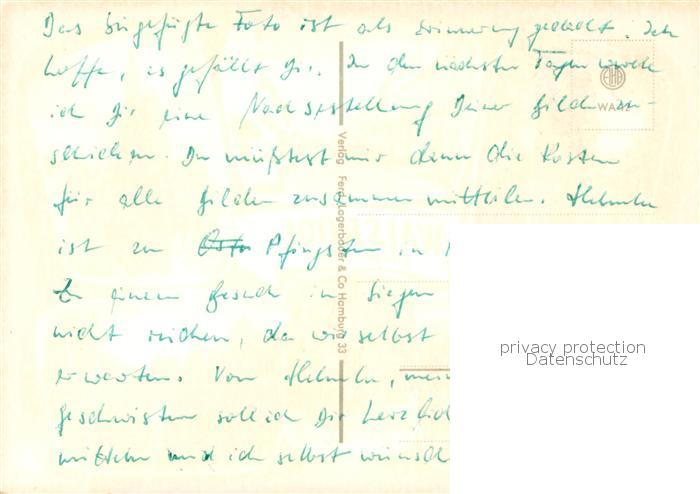 Das beigefügte Foto ist als Erinnerung gedacht. Ich
hoffe, es gefällt Dir. In den nächsten Tagen werde
ich Dir eine Nachbestellung Deiner Bilder zu-
schicken. Du müßtest mir dann die Kosten
für alle Bilder zusammen mitteilen.
ist zu Pfingsten in
Zu einem Besuch in Siegen
nicht reichen, da wir selbst
erwarten. Von
Geschwistern soll ich Dir herzlich
und ich selbst wünsch
Verlag Ferd. Lagerbauer & Co Hamburg 33
privacy protection
Datenschutz